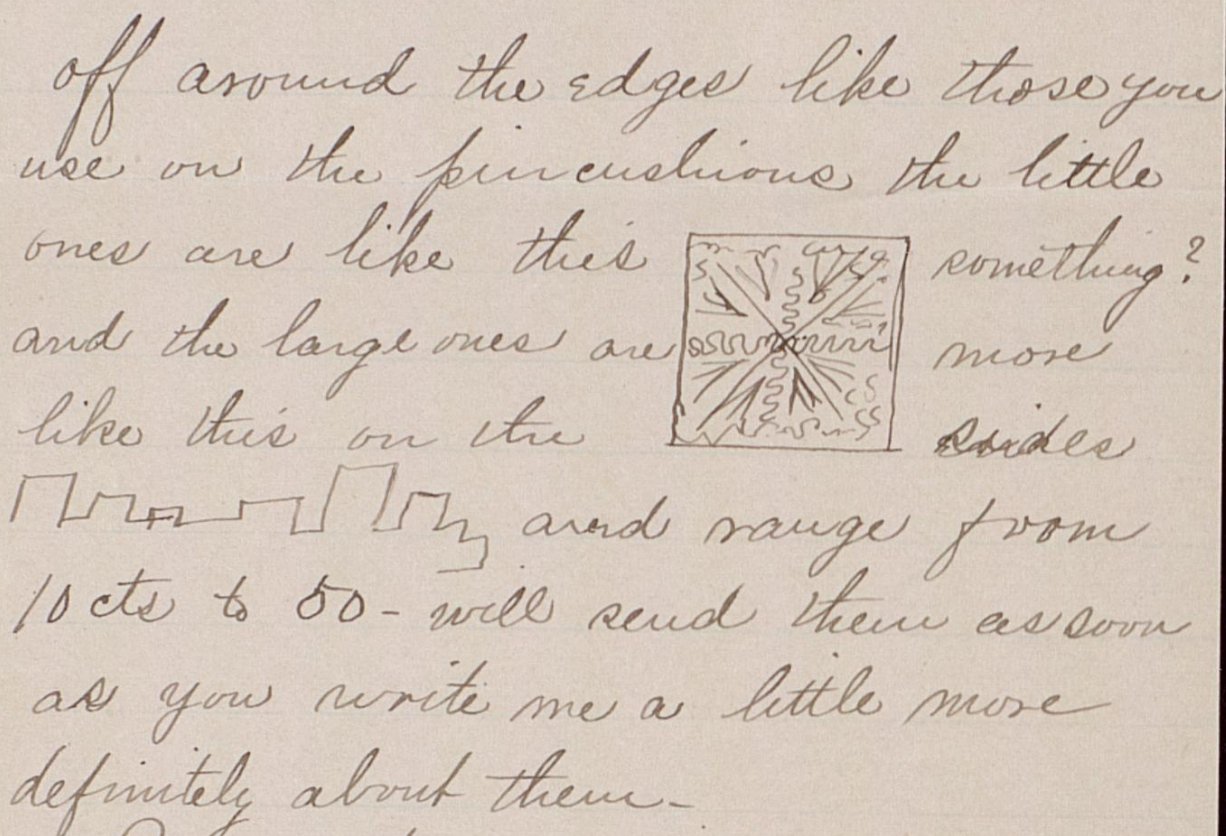 off around the edges like those you
use on the pincushions the little
ones are like this something?
and the large ones are more
like this on the sides
and range from
10 cts to 50 - will send them as soon
as you write me a little more
definitely about them -